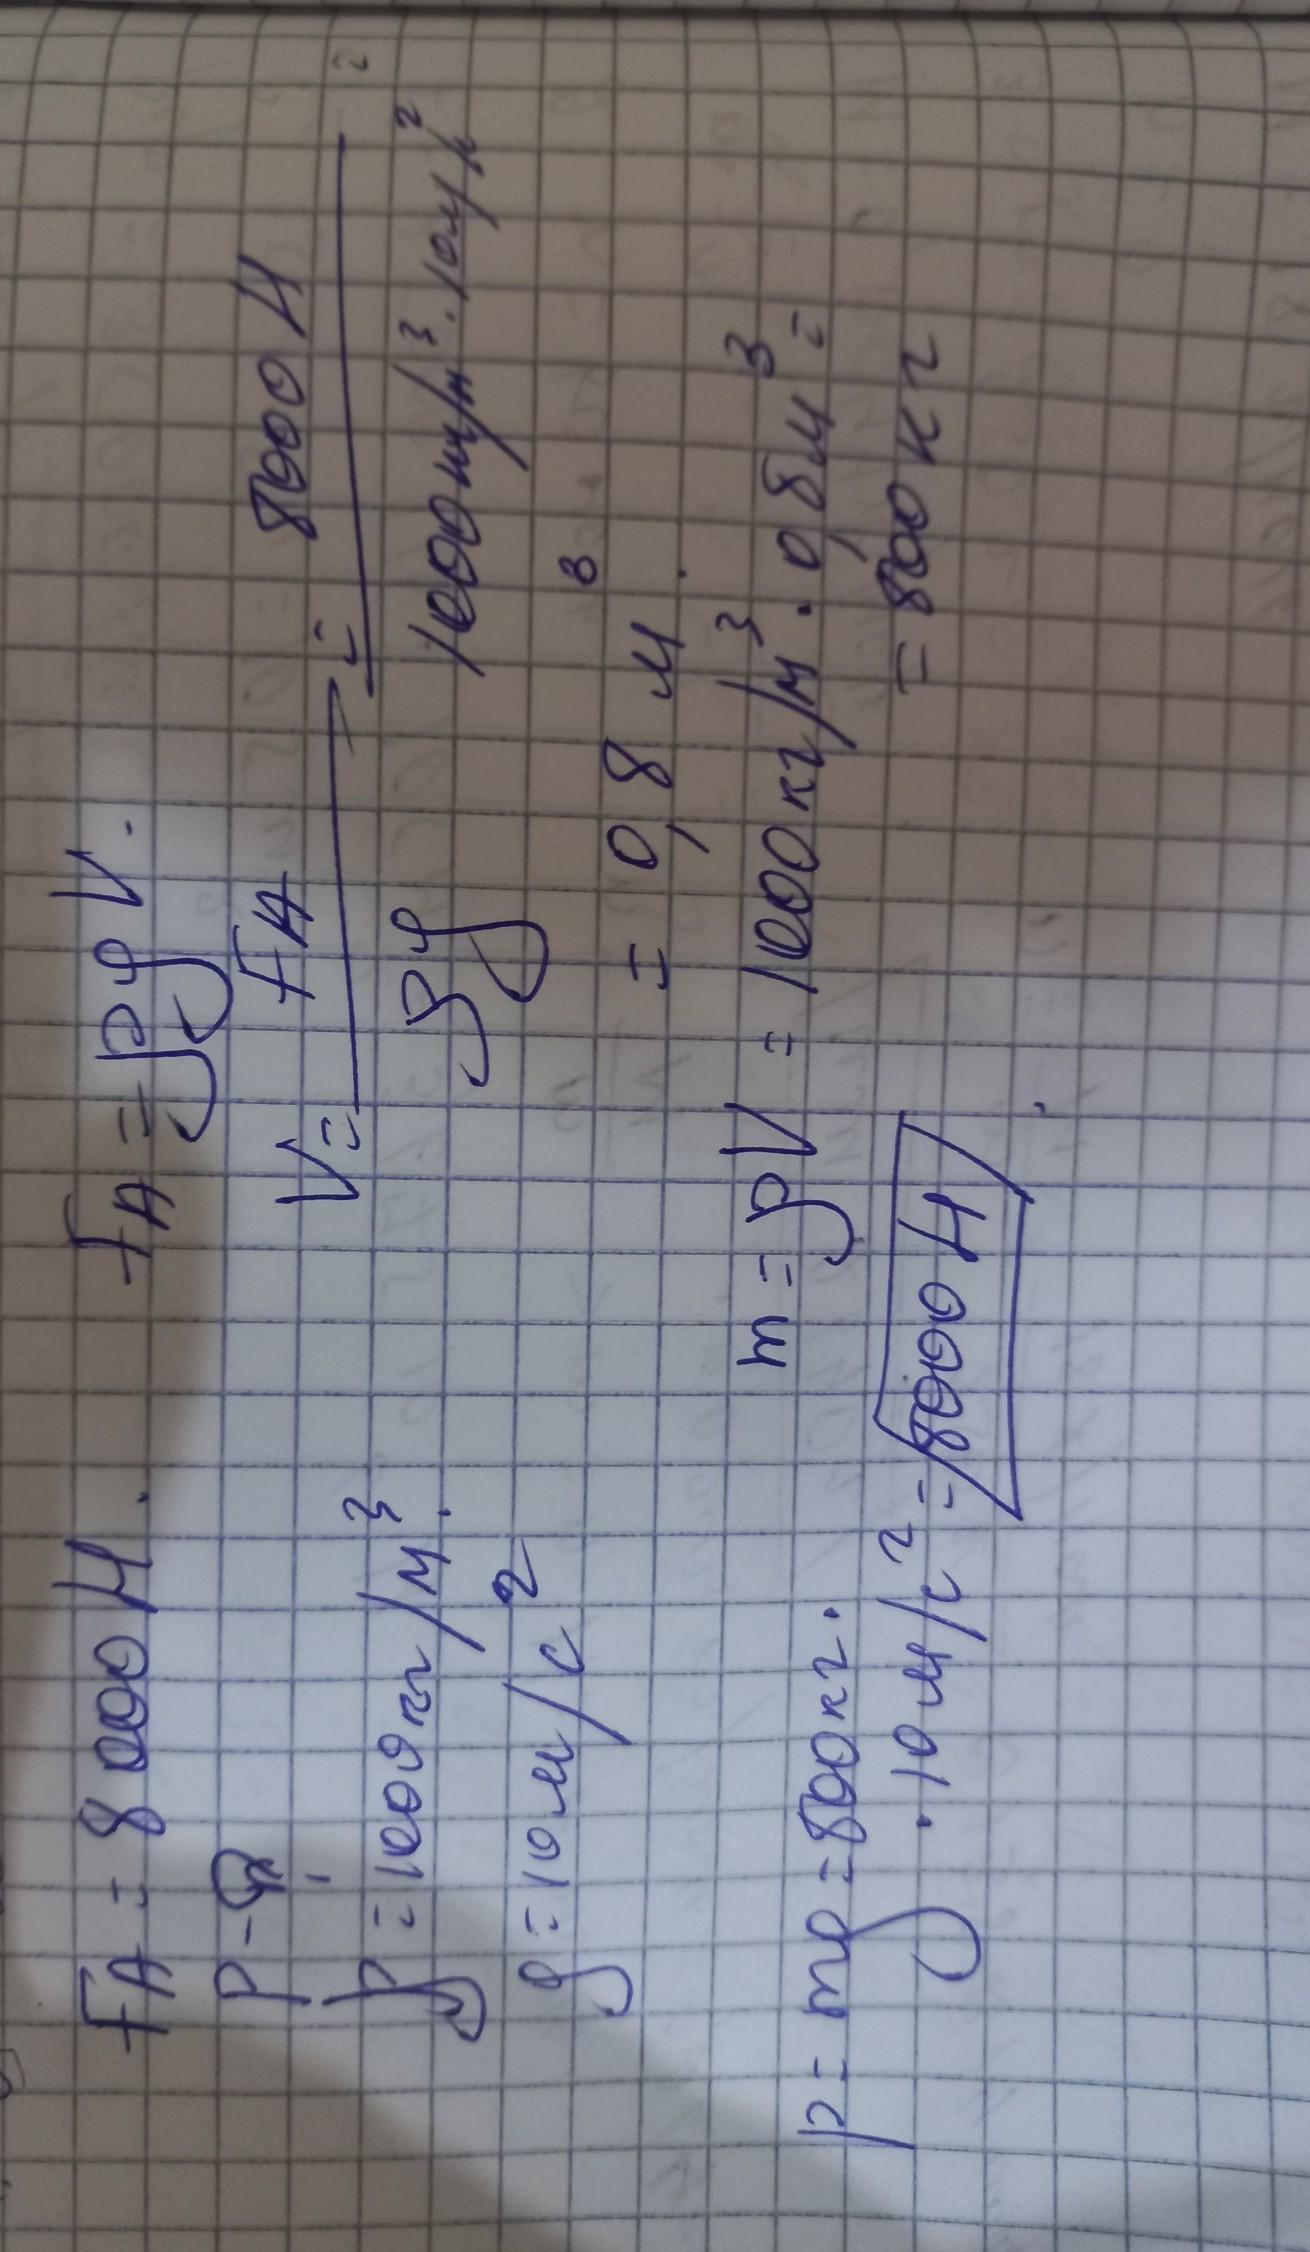 FA = 8000 Н.
P - ?
ρ = 1000 кг/м³.
g = 10 м/с²
FA = ρgV.
V = FA / ρg = 8000 Н / 1000 кг/м³ · 10 м/с²
= 0,8 м³.
m = ρV = 1000 кг/м³ · 0,8 м³ =
= 800 кг
P = mg = 800 кг ·
· 10 м/с² = 8000 Н